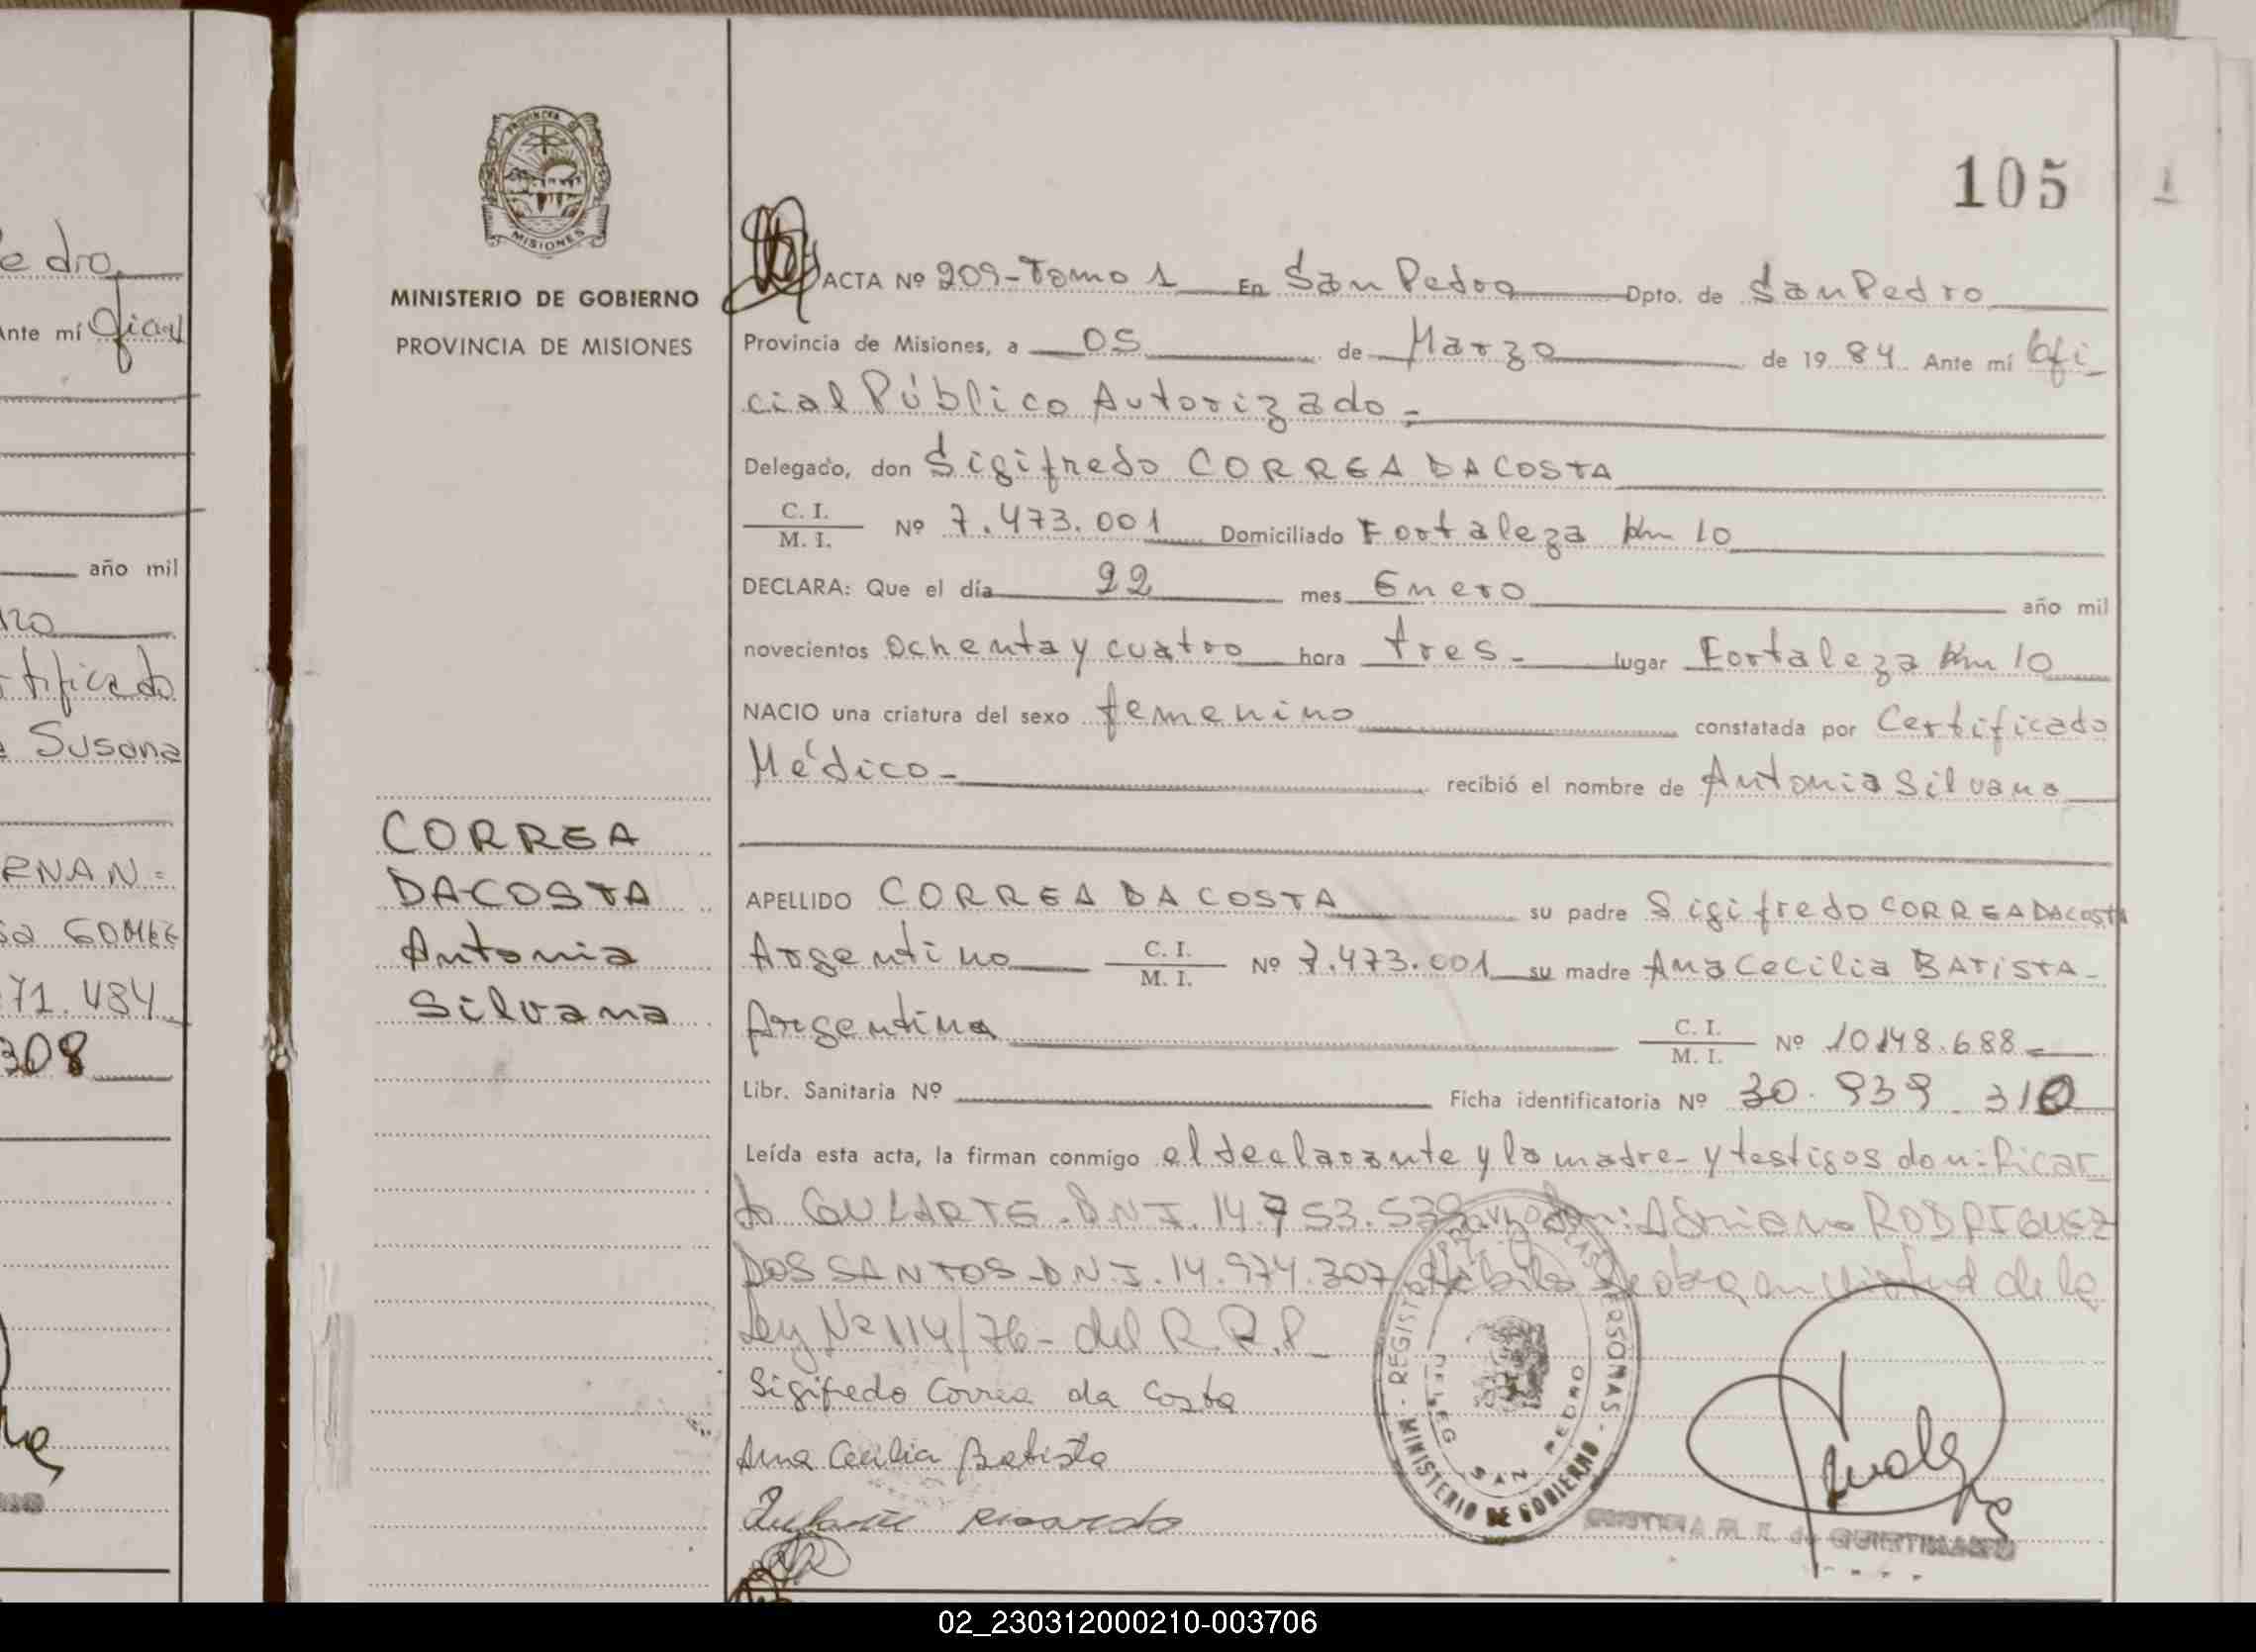 edro
Ante mí Oficial
año mil
ertificado
Susana
ERNAN=
GOMEZ
71.484
308
PROVINCIA DE
MISIONES
MINISTERIO DE GOBIERNO
PROVINCIA DE MISIONES
CORREA
DACOSTA
Antonia
Silvana
105
ACTA Nº 209-Tomo 1 En San Pedro Dpto. de San Pedro
Provincia de Misiones, a 05 de Marzo de 1984 Ante mí Ofi
cial Público Autorizado-
Delegado, don Sigifredo CORREA DACOSTA
C. I.
M. I. Nº 7.473.001 Domiciliado Fortaleza Km 10
DECLARA: Que el día 22 mes Enero año mil
novecientos Ochenta y cuatro hora tres- lugar Fortaleza Km 10
NACIO una criatura del sexo femenino constatada por Certificado
Médico- recibió el nombre de Antonia Silvana
APELLIDO CORREA DA COSTA su padre Sigifredo CORREA DACOSTA
Argentino C. I.
M. I. Nº 7.473.001 su madre Ana Cecilia BATISTA-
Argentina C. I.
M. I. Nº 10148.688-
Libr. Sanitaria Nº Ficha identificatoria Nº 30.939.310
Leída esta acta, la firman conmigo el declarante y la madre- y testigos don: Ricar
do GULARTE-D.N.I. 14.753.539 y don: Adriano RODRIGUEZ
DOS SANTOS-D.N.I.14.974.307 en virtud de la
Ley Nº 114/76- del R.R.P-
Sigifredo Correa da Costa
Ana Cecilia Batista
Gularte Ricardo
REGISTRO PERSONAS - MINISTERIO DE GOBIERNO -
DELEG SAN PEDRO
02_230312000210-003706